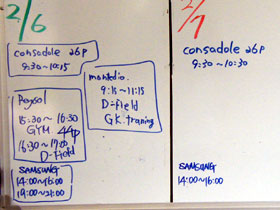 2/6
consadole 26p
9:30~10:15
montedio.
9:15~11:15
D=field
GK traning
Reysol
15:30~16:30
GYM 44p
16:30~17:00
D-Field
SAMSUNG
14:00~16:00
19:00~21:00
2/7
consadole 26p
9:30~10:30
SAMSUNG
14:00~16:00